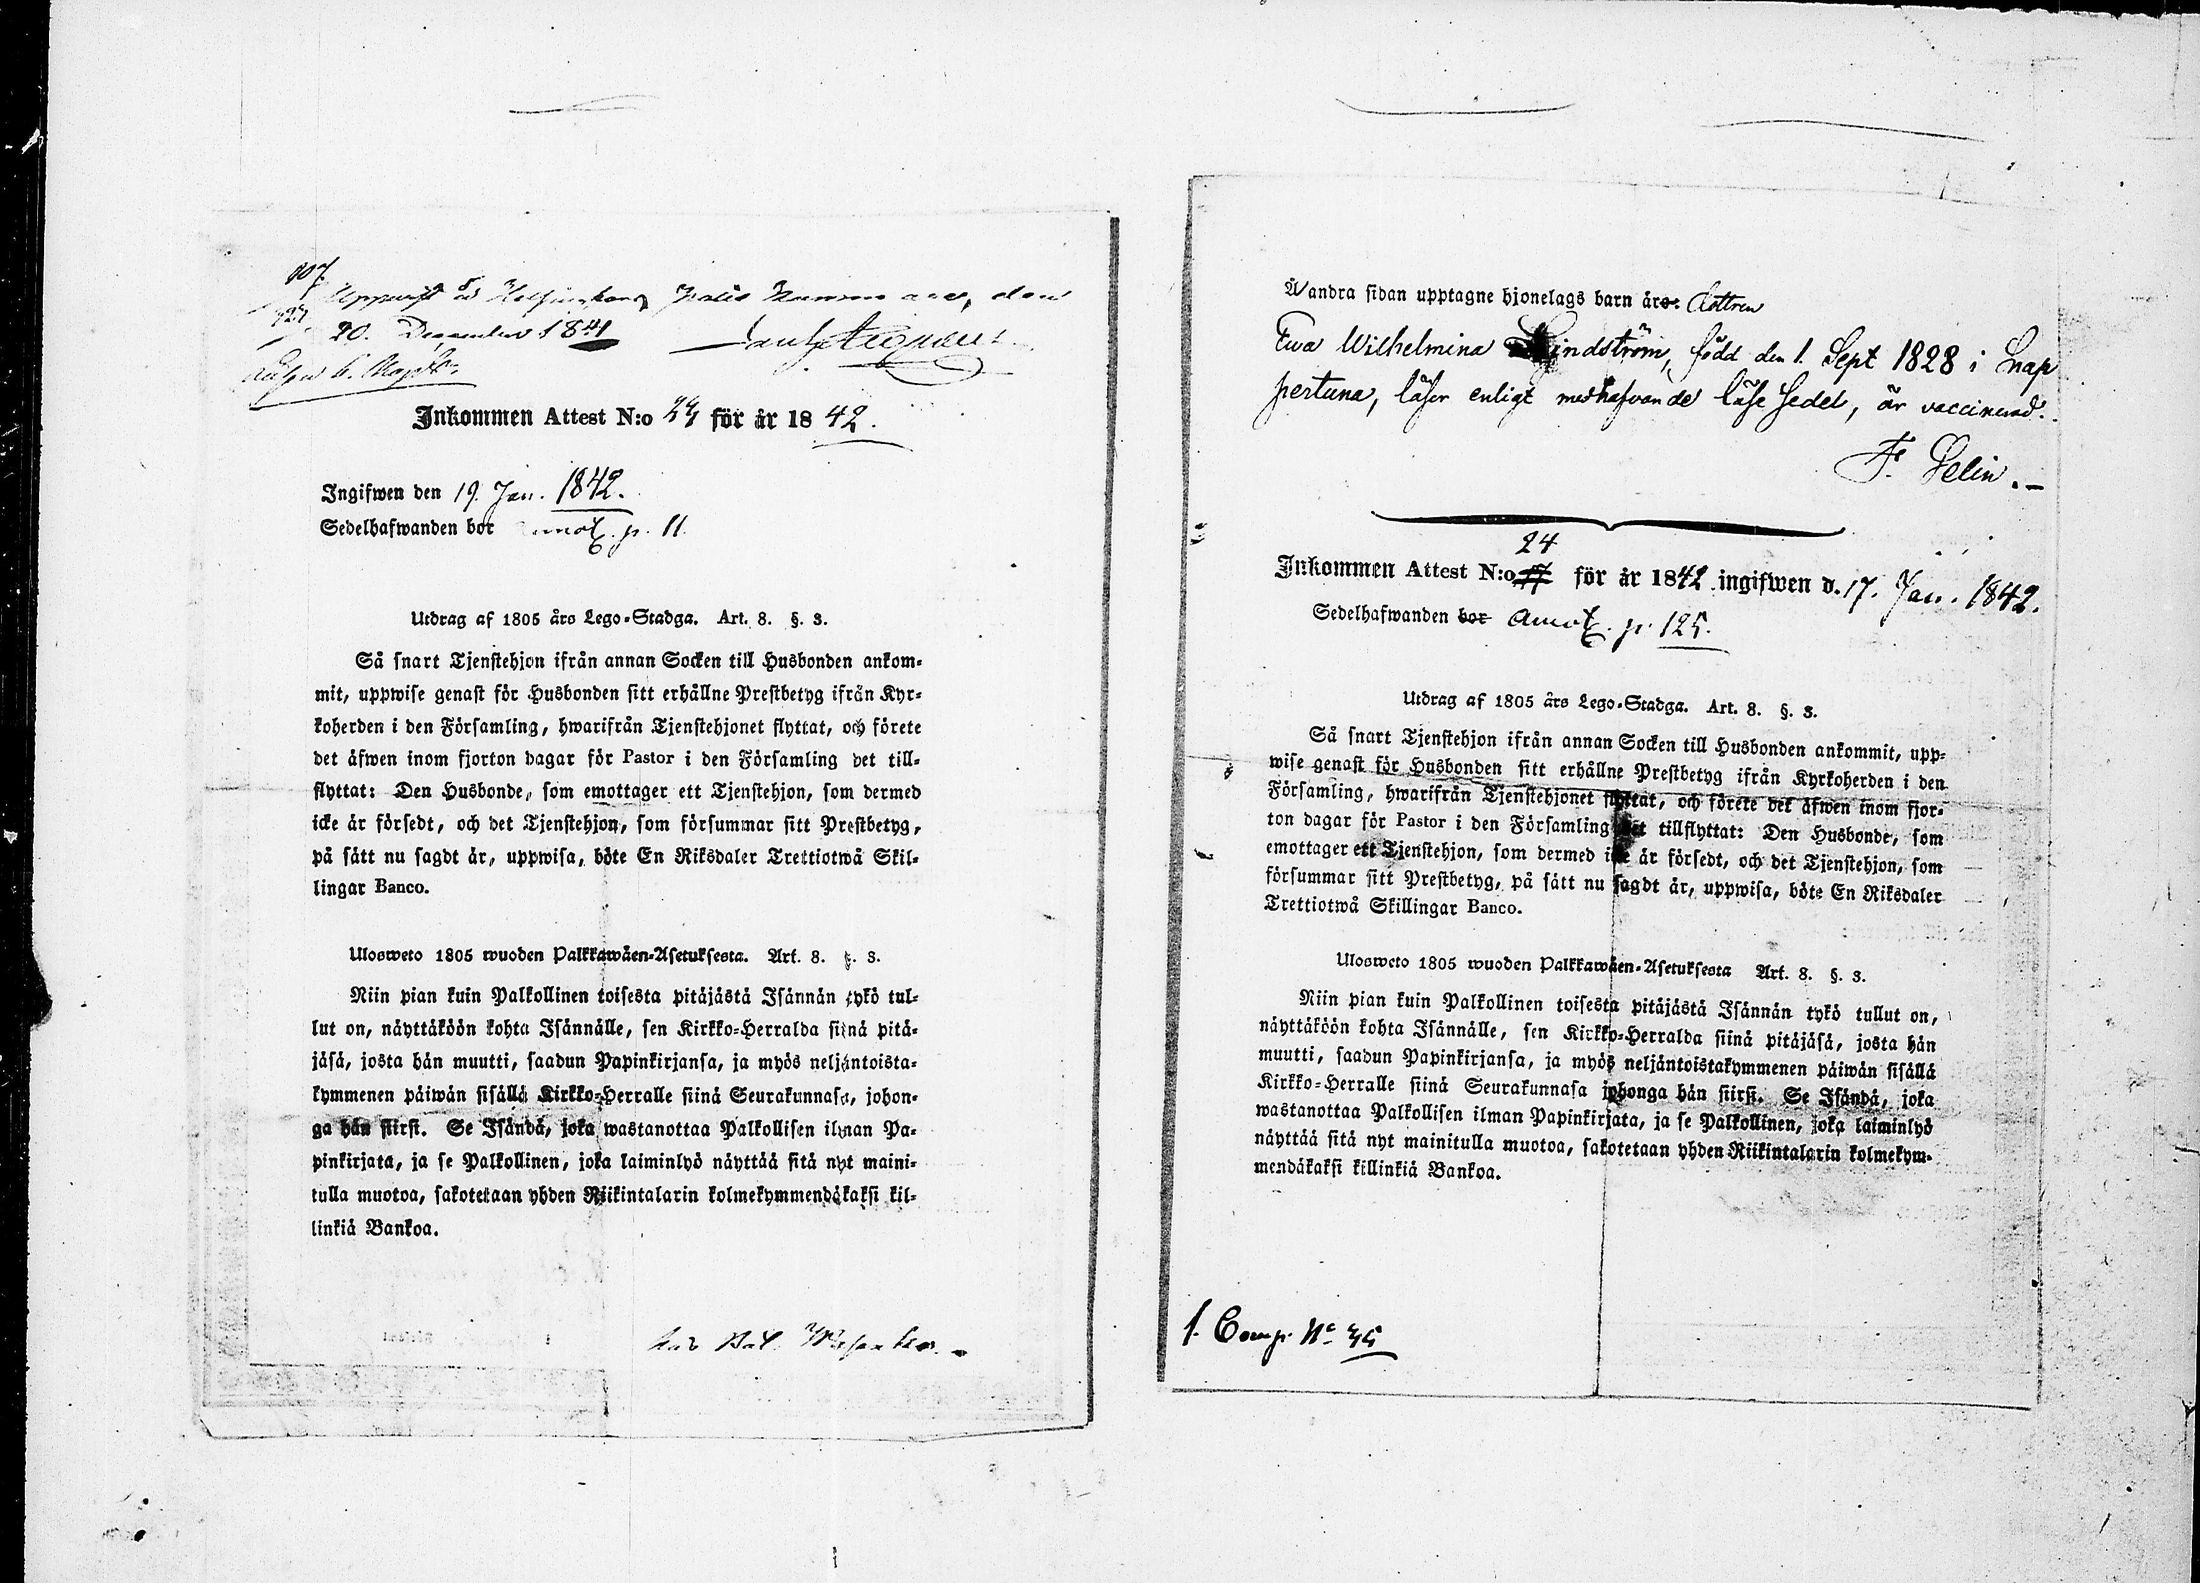 107.
20. December 1841
Inkommen Attest N:o 24 för år 1842.
Ingifwen den 19. Jan. 1842.
Sedelhafwanden bor annot. p. 11.
Utdrag af 1805 års Lego-Stadga. Art. 8. §. 3.
Så snart Tjenstehjon ifrån annan Socken till Husbonden ankom-
mit, uppwise genast för Husbonden sitt erhållne Prestbetyg ifrån Kyr-
koherden i den Församling, hwarifrån Tjenstehjonet flyttat, och förete
det äfwen inom fjorton dagar för Pastor i den Församling det till-
flyttat: Den Husbonde, som emottager ett Tjenstehjon, som dermed
icke är försedt, och det Tjenstehjon, som försummar sitt Prestbetyg,
på sätt nu sagdt är, uppwisa, böte En Riksdaler Trettiotwå Skil-
lingar Banco.
Ulosweto 1805 wuoden Palkkawäen-Asetuksesta. Art. 8. §. 3.
Niin pian kuin Palkollinen toisesta pitäjästä Isännän tykö tul-
lut on, näyttäköön kohta Isännälle, sen Kirkko-Herralda siinä pitä-
jäsä, josta hän muutti, saadun Papinkirjansa, ja myös neljäntoista-
kymmenen päiwän sisällä Kirkko-Herralle siinä Seurakunnasa, johon-
ga hän siirsi. Se Isändä, joka wastanottaa Palkollisen ilman Pa-
pinkirjata, ja se Palkollinen, joka laiminlyö näyttää sitä nyt maini-
tulla muotoa, sakotetaan yhden Riikintalarin kolmekymmendäkaksi kil-
linkiä Bankoa.
Å andra sidan upptagne hjonelags barn äro: dottren
Ewa Wilhelmina Lindström, född den 1. Sept 1828 i Snap
pertuna, läser enligt medhafvande läse sedel, är vaccinerad.
F. Selin.
24
Inkommen Attest N:o för år 1842 ingifwen d. 17. Jan. 1842.
Sedelhafwanden bor annot. p. 125.
Utdrag af 1805 års Lego-Stadga. Art. 8. §. 3.
Så snart Tjenstehjon ifrån annan Socken till Husbonden ankommit, upp-
wise genast för Husbonden sitt erhållne Prestbetyg ifrån Kyrkoherden i den
Församling, hwarifrån Tjenstehjonet flyttat, och förete det äfwen inom fjor-
ton dagar för Pastor i den Församling det tillflyttat: Den Husbonde, som
emottager ett Tjenstehjon, som dermed icke är försedt, och det Tjenstehjon, som
försummar sitt Prestbetyg, på sätt nu sagdt är, uppwisa, böte En Riksdaler
Trettiotwå Skillingar Banco.
Ulosweto 1805 wuoden Palkkawäen-Asetuksesta Art. 8. §. 3.
Niin pian kuin Palkollinen toisesta pitäjästä Isännän tykö tullut on,
näyttäköön kohta Isännälle, sen Kirkko-Herralda siinä pitäjäsä, josta hän
muutti, saadun Papinkirjansa, ja myös neljäntoistakymmenen päiwän sisällä
Kirkko-Herralle siinä Seurakunnasa johonga hän siirsi. Se Isändä, joka
wastanottaa Palkollisen ilman Papinkirjata, ja se Palkollinen, joka laiminlyö
näyttää sitä nyt mainitulla muotoa, sakotetaan yhden Riikintalarin kolmekym-
mendäkaksi killinkiä Bankoa.
1. Comp. No 35